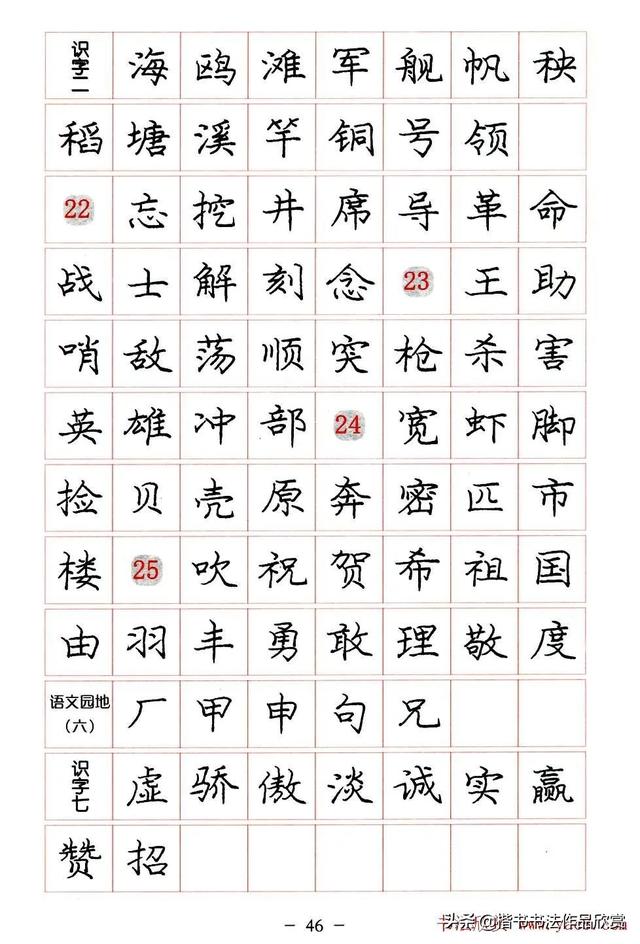 识字二 海 鸥 滩 军 舰 帆 秧
稻 塘 溪 竿 铜 号 领
22 忘 挖 井 席 导 革 命
战 士 解 刻 念 23 王 助
哨 敌 荡 顺 突 枪 杀 害
英 雄 冲 部 24 宽 虾 脚
捡 贝 壳 原 奔 密 匹 市
楼 25 吹 祝 贺 希 祖 国
由 羽 丰 勇 敢 理 敬 度
语文园地(六) 厂 甲 申 句 兄
识字七 虚 骄 傲 淡 诚 实 赢
赞 招
- 46 -
头条@楷书书法作品欣赏